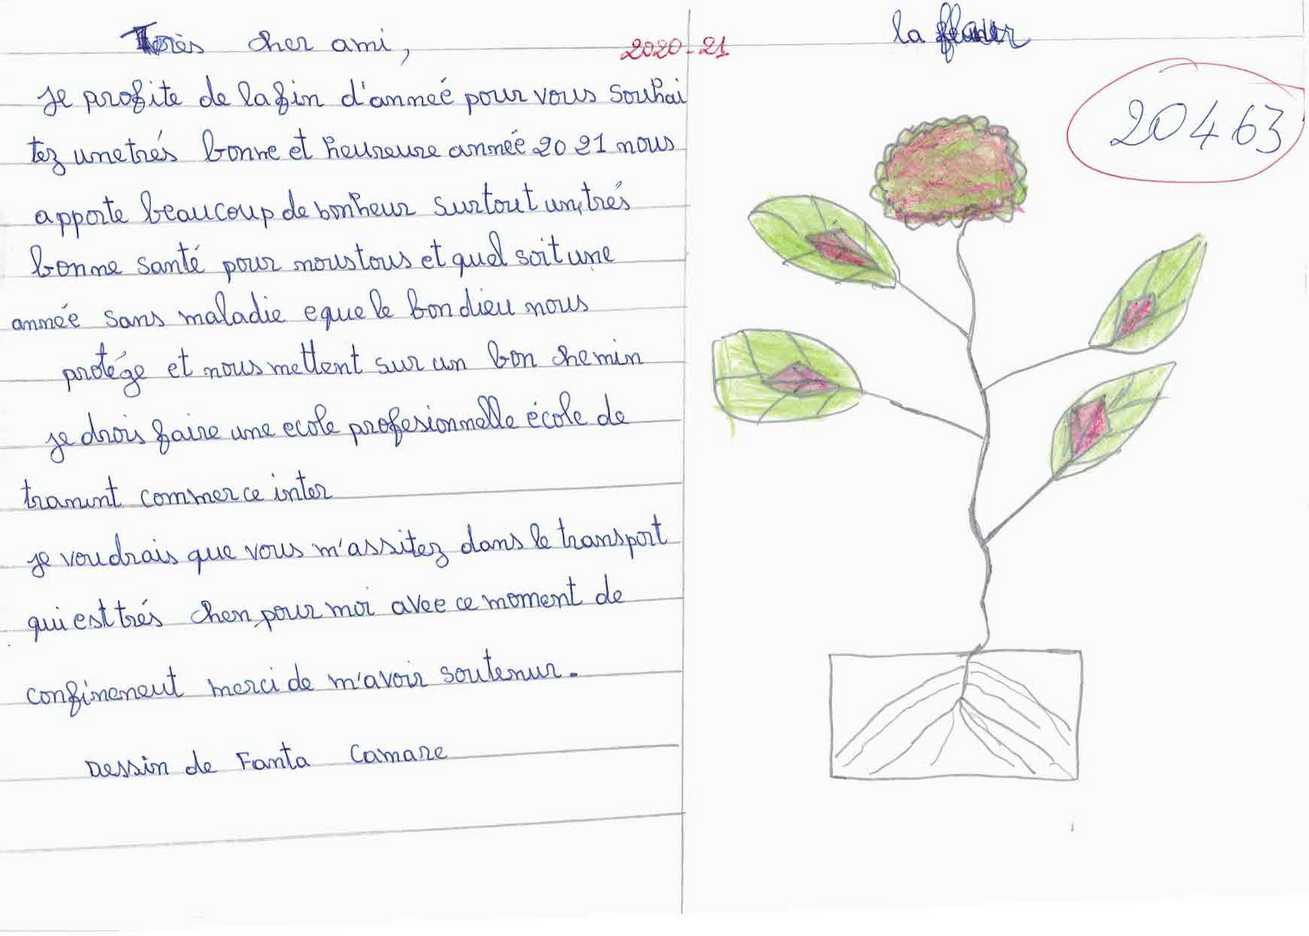 Très cher ami,
2020-21
je profite de lafin d'anneé pour vous souhai
tez unetrés bonne et heureure année 2021 nous
apporte beaucoup de bonheur surtout un,trés
bonne santé pour noustous et quel soit une
année sans maladie eque le bon dieu nous
protége et nous mettent sur un bon chemin
je drois faire une ecole profesionnelle école de
commerce inter
je voudrais que vous m'assitez dans le transport
qui est trés pour moi avee ce moment de
confinement merci de m'avoir soutenur.
Dessin de Fanta Camare
la fleur
20463